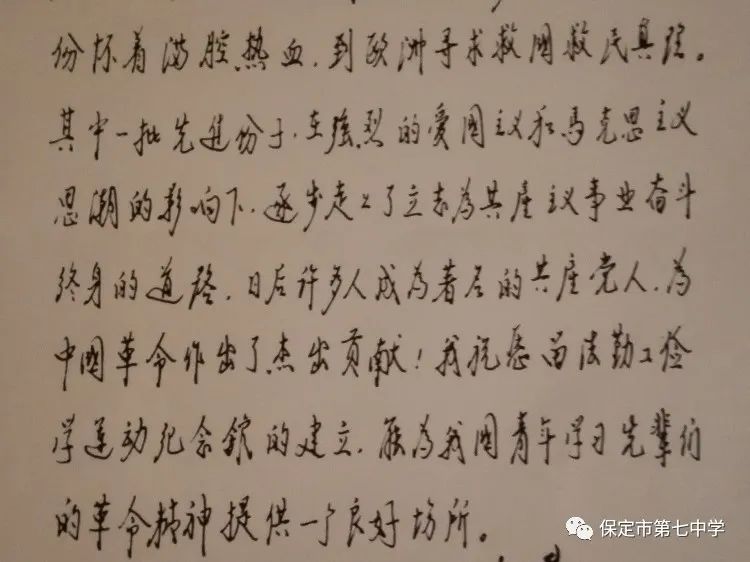 份怀着满腔热血,到欧洲寻求救国救民真理。
其中一批先进份子,在强烈的爱国主义和马克思主义
思潮的影响下,逐步走上了立志为共产主义事业奋斗
终身的道路,日后许多人成为著名的共产党人,为
中国革命作出了杰出贡献!我祝愿留法勤工俭
学运动纪念馆的建立,能为我国青年学习先辈们
的革命精神提供一个良好场所。
保定市第七中学